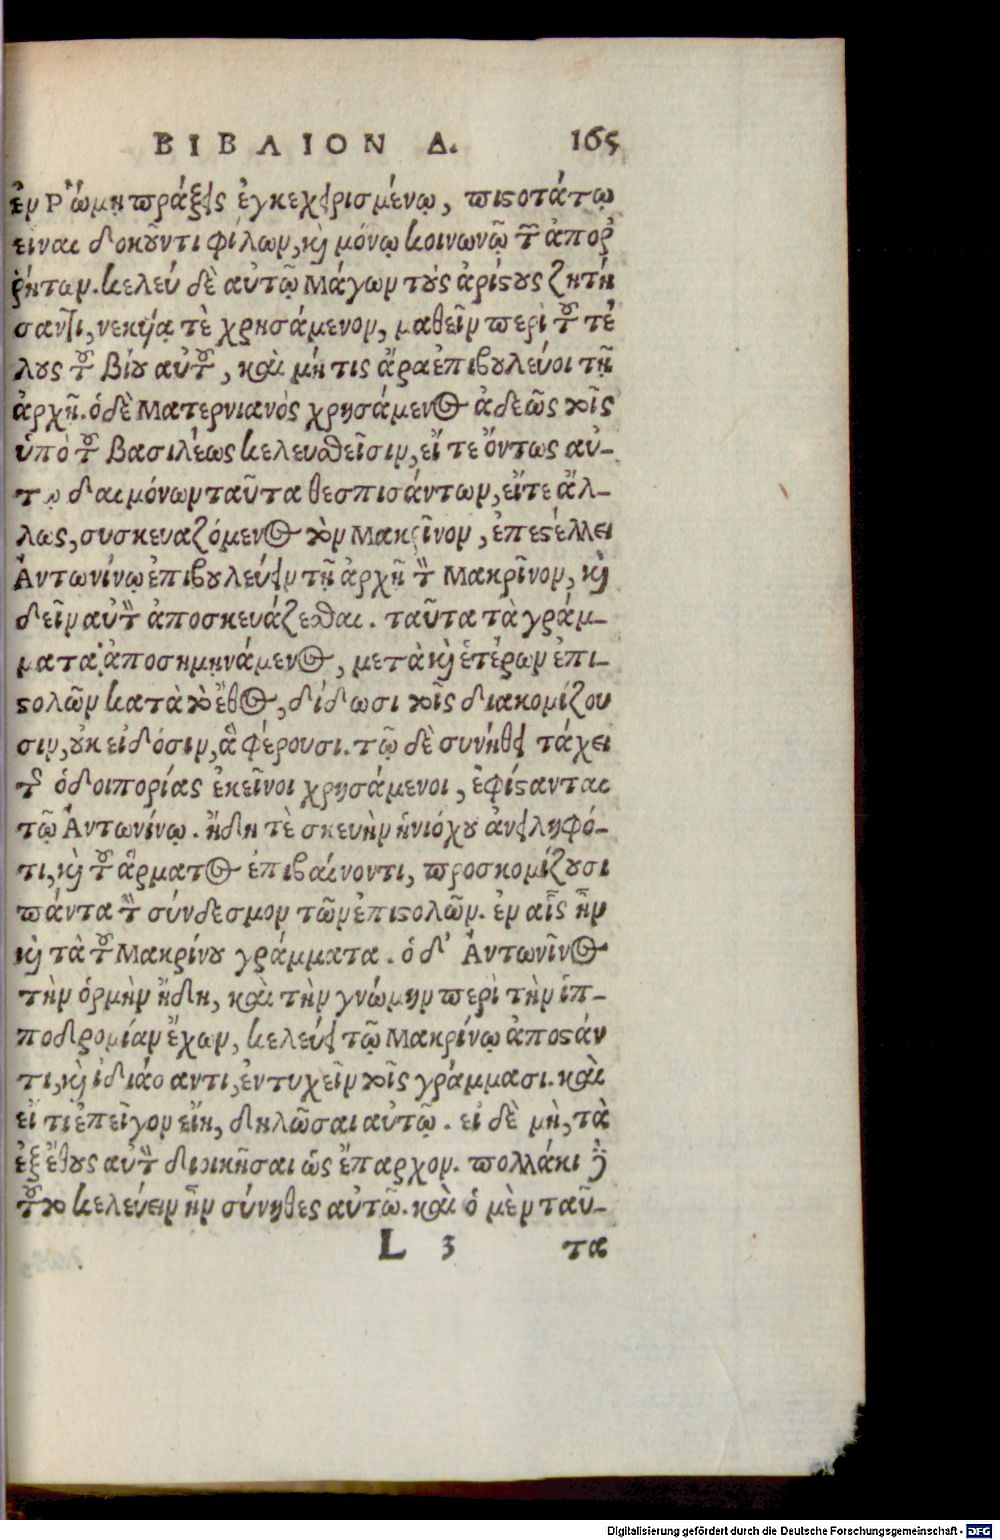 ΒΙΒΛΙΟΝ Δ. 165
ἐν Ῥώμῃ πράξεις ἐγκεχειρισμένῳ, πιστοτάτῳ
εἶναι δοκοῦντι φίλων, καὶ μόνῳ κοινωνῷ τῶν ἀπορ
ῥήτων. κελεύει δὲ αὐτῷ Μάγων τοὺς ἀρίστους ζητή
σαντι, νεκυίᾳ τὲ χρησάμενον, μαθεῖν περὶ τοῦ τέ
λους τοῦ βίου αὐτοῦ, καὶ μή τις ἄρα ἐπιβουλεύοι τῇ
ἀρχῇ. ὁ δὲ Ματερνιανὸς χρησάμενος ἀδεῶς τοῖς
ὑπὸ τοῦ βασιλέως κελευσθεῖσιν, εἴ τε ὄντως αὐ-
τῷ δαιμόνων ταῦτα θεσπισάντων, εἴτε ἄλ-
λως, συσκευαζόμενος τὸν Μακρῖνον, ἐπεστέλλει
Ἀντωνίνῳ ἐπιβουλεύειν τῇ ἀρχῇ τὸν Μακρῖνον, καὶ
δεῖν αὐτὸν ἀποσκευάζεσθαι. ταῦτα τὰ γράμ-
ματα ἀποσημηνάμενος, μετὰ καὶ ἑτέρων ἐπι-
στολῶν κατὰ τὸ ἔθος, δίδωσι τοῖς διακομίζου
σιν, οὐκ εἰδόσιν, ἃ φέρουσι. τῷ δὲ συνήθει τάχει
τῆς ὁδοιπορίας ἐκεῖνοι χρησάμενοι, ἐφίστανται
τῷ Ἀντωνίνῳ. ἤδη τὲ σκευὴν ἡνιόχου ἀνειληφό-
τι, καὶ τοῦ ἅρματος ἐπιβαίνοντι, προσκομίζουσι
πάντα τὸν σύνδεσμον τῶν ἐπιστολῶν. ἐν αἷς ἦν
καὶ τὰ τοῦ Μακρίνου γράμματα. ὁ δ' Ἀντωνῖνος
τὴν ὁρμὴν ἤδη, καὶ τὴν γνώμην περὶ τὴν ἱπ-
ποδρομίαν ἔχων, κελεύει τῷ Μακρίνῳ ἀποστάν
τι, καὶ ἰδιάσαντι, ἐντυχεῖν τοῖς γράμμασι. καὶ
εἴ τι ἐπεῖγον εἴη, δηλῶσαι αὐτῷ. εἰ δὲ μὴ, τὰ
ἐξ ἔθους αὐτὸν διοικῆσαι ὡς ἔπαρχον. πολλάκι γὰρ
τοῦτο κελεύειν ἦν σύνηθες αὐτῷ. καὶ ὁ μὲν ταῦ-
L 3 τα
Digitalisierung gefördert durch die Deutsche Forschungsgemeinschaft - DFG